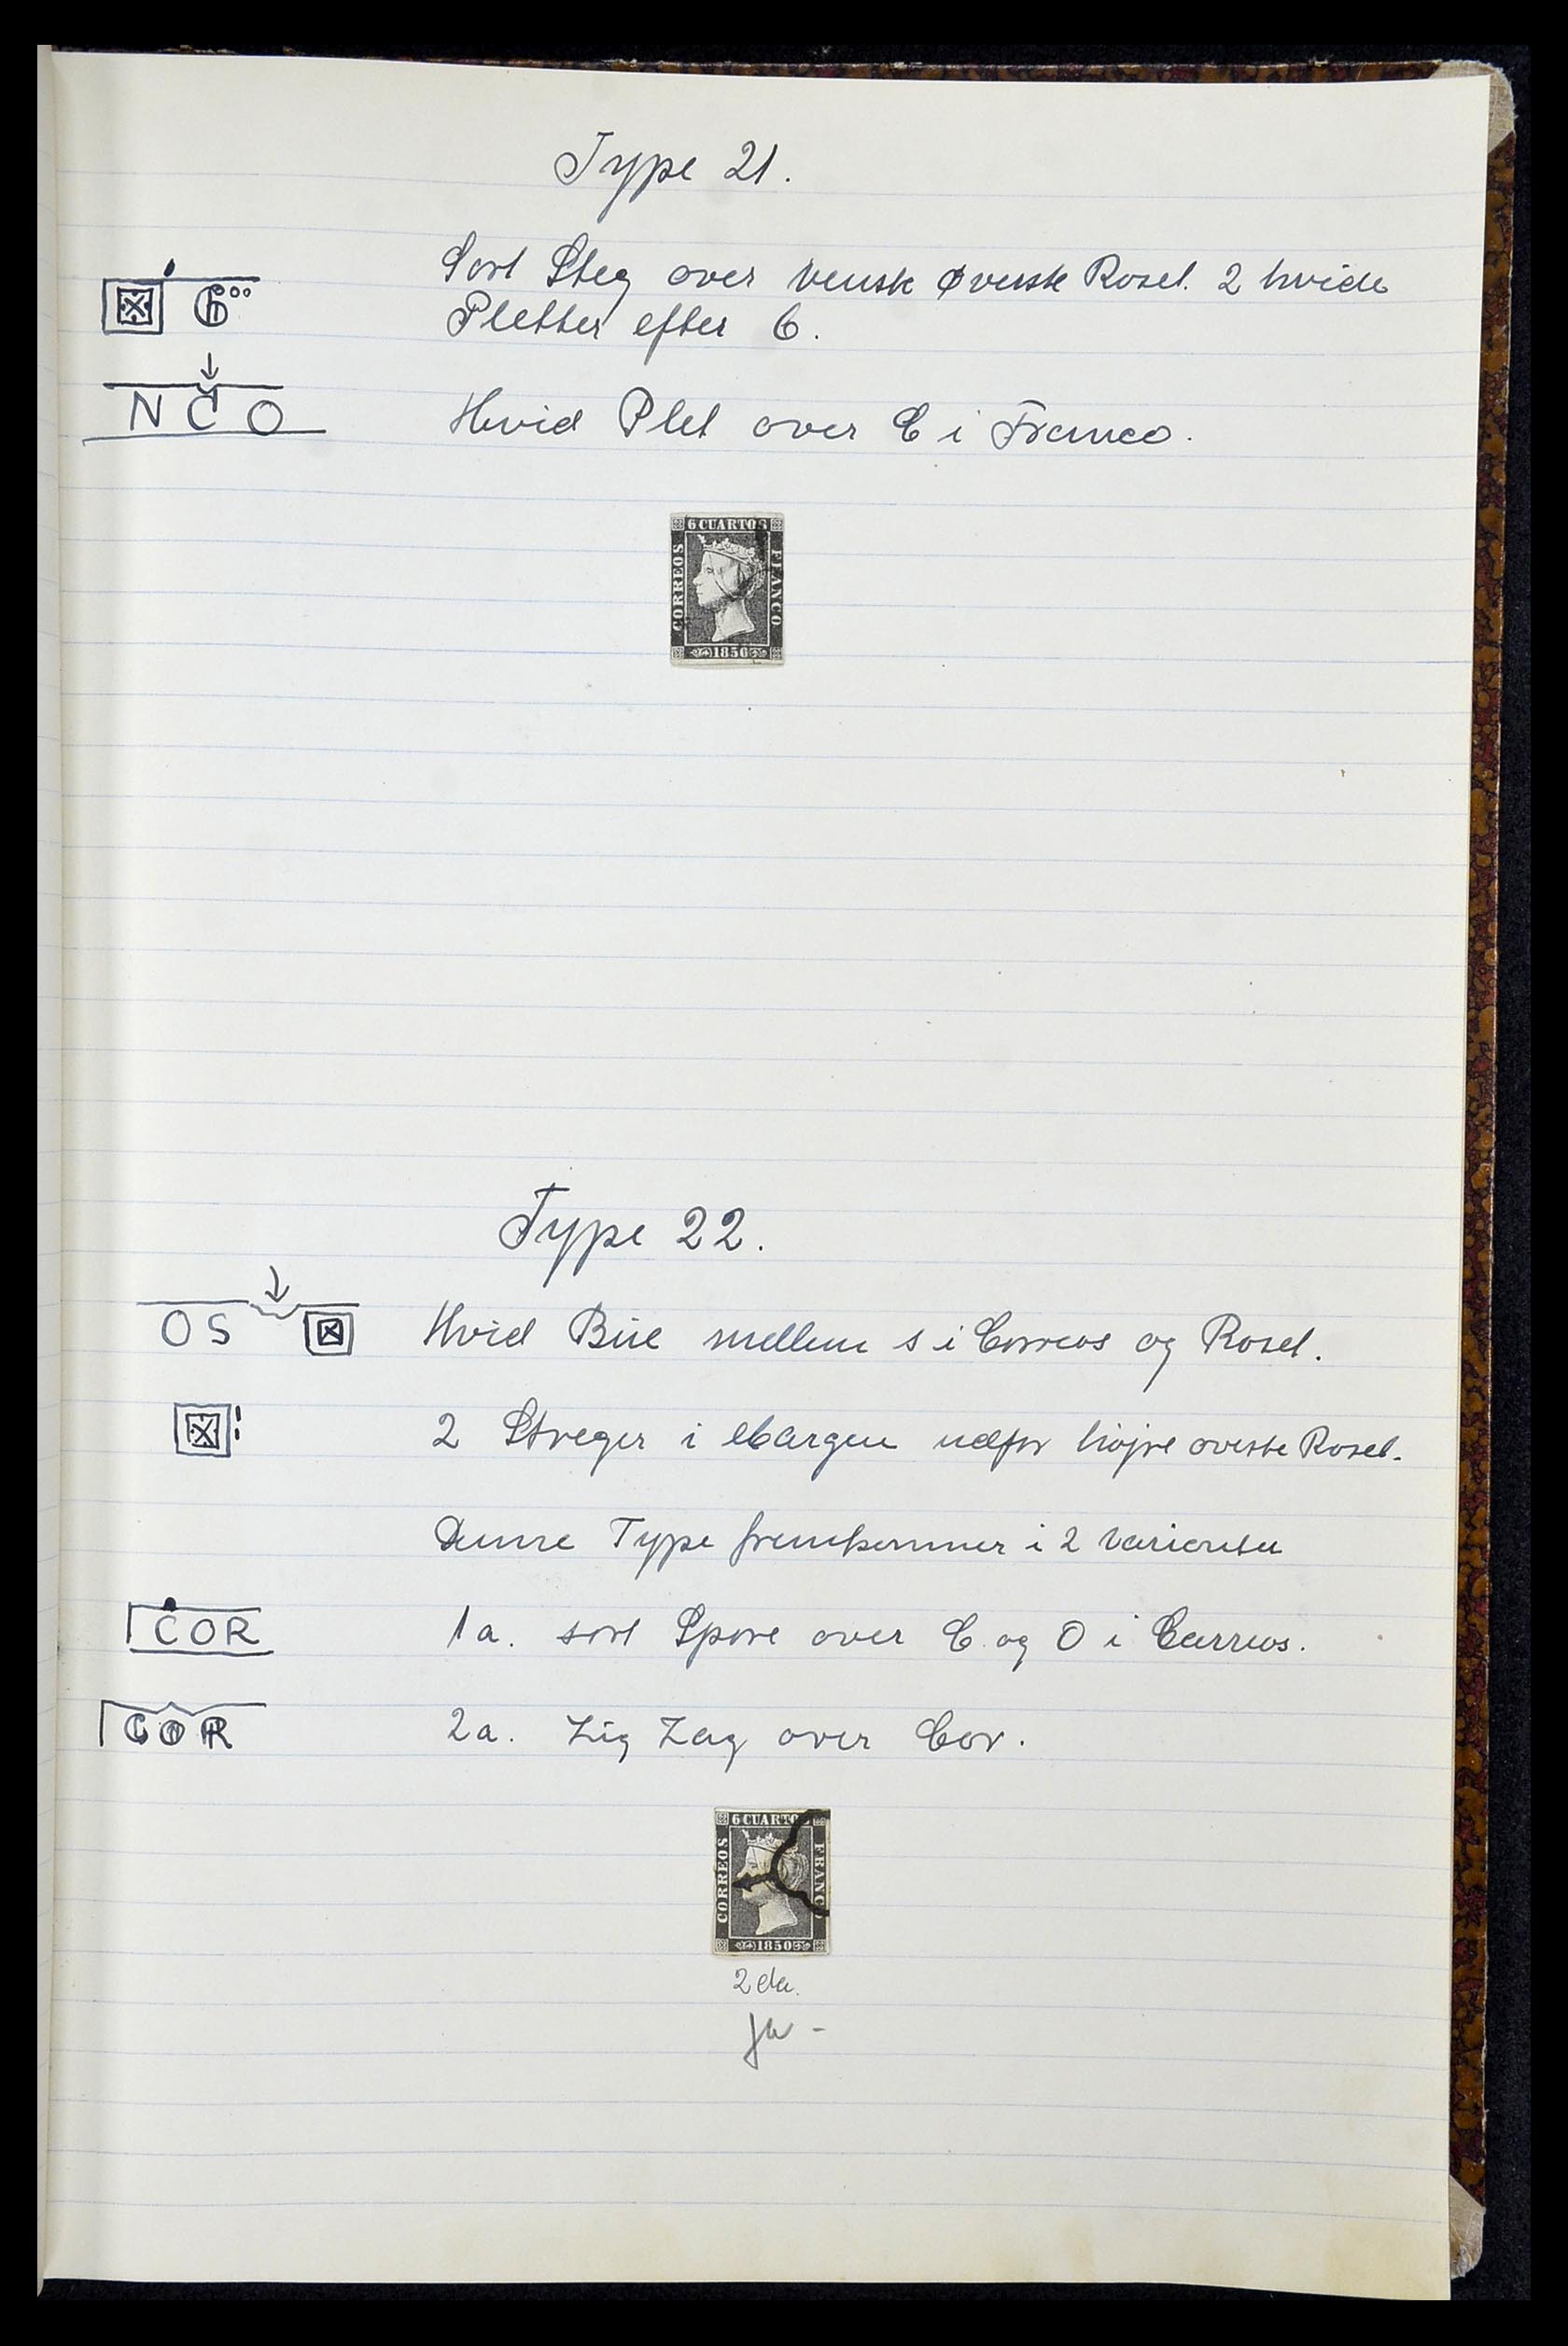 Type 21.
6
Sort Steg over venste øverste Roset. 2 hvide
Pletter efter 6.
N C O
Hvid Plet over C i Franco.
6 CUARTOS
CORREOS
FRANCO
1850
Type 22.
OS
Hvid Bue mellem s i Correos og Roset.
2 Streger i Margen udfor højre øverste Roset.
Denne Type fremkommer i 2 Varianter
COR
1a. sort Spore over C og O i Correos.
COR
2a. Zig Zag over Cor.
6 CUARTOS
CORREOS
FRANCO
1850